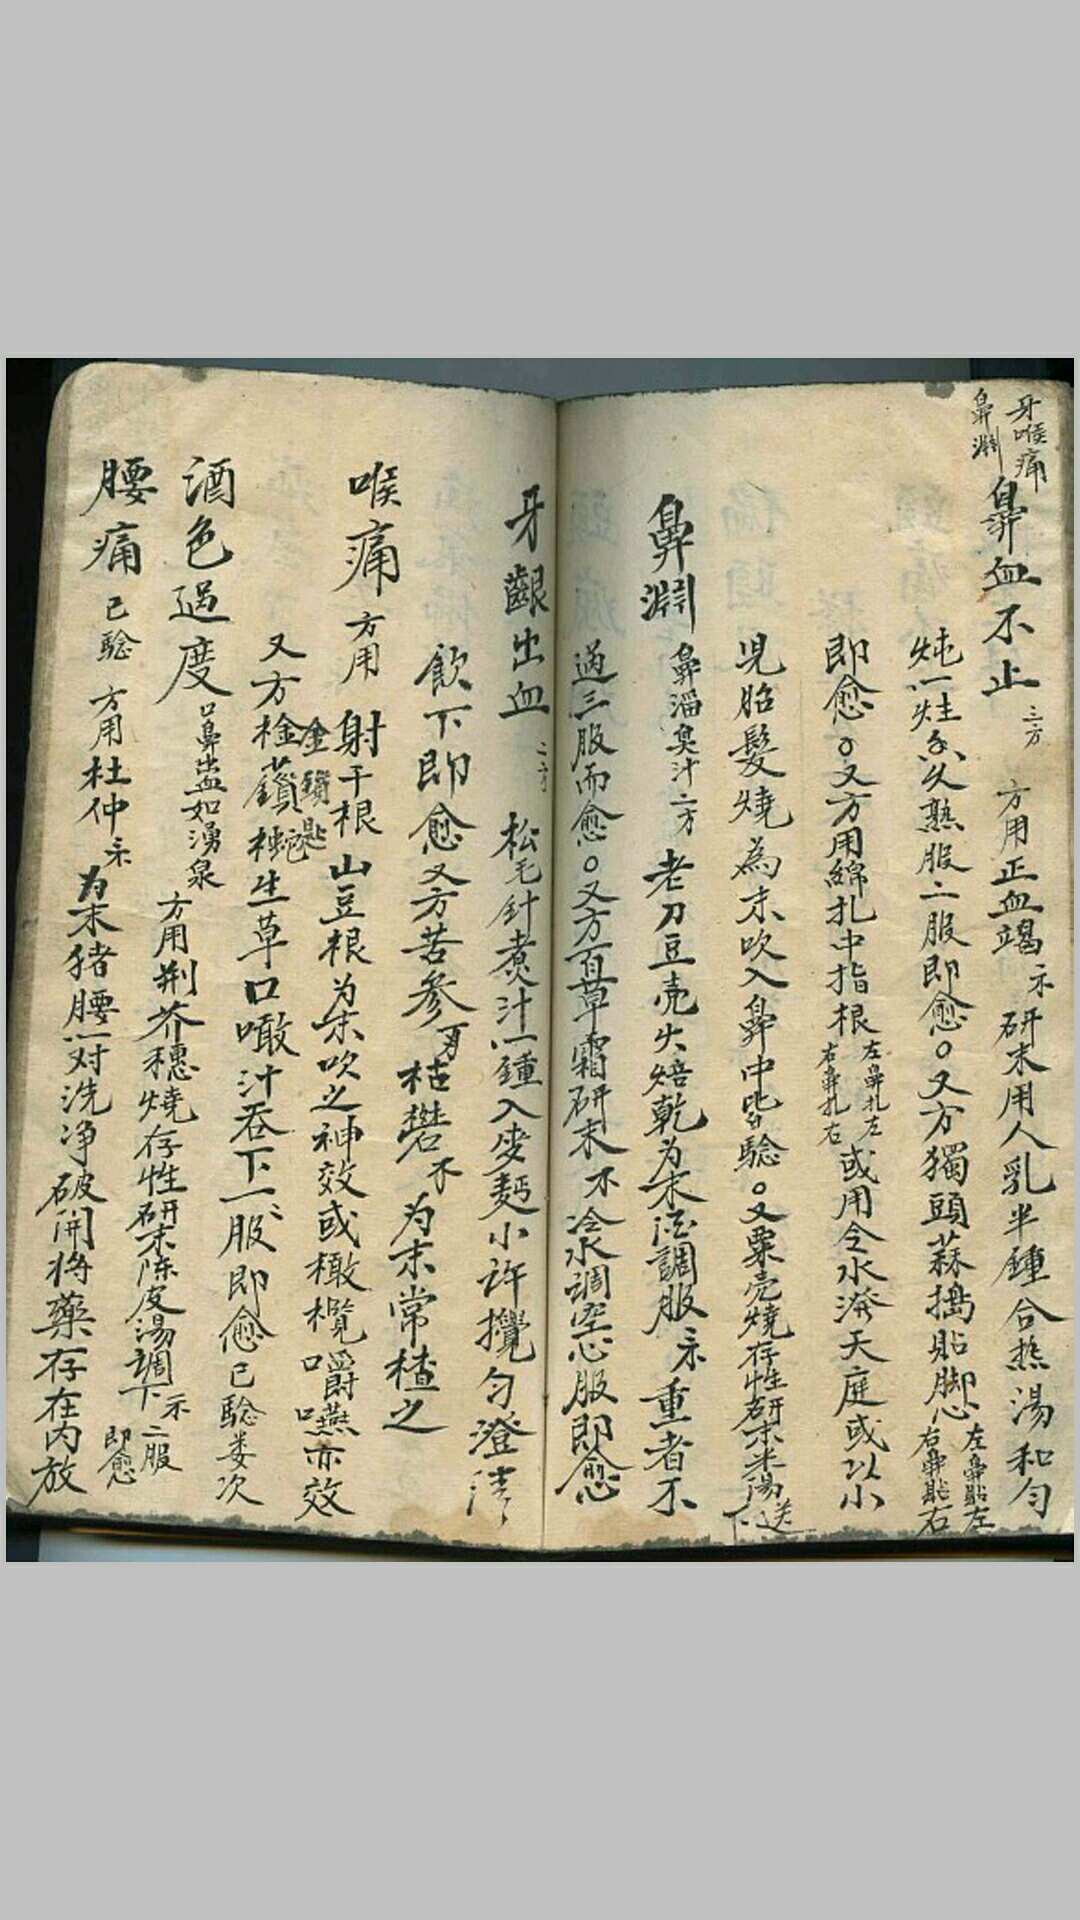 牙喉痛
鼻淵
鼻血不止 三方 方用正血竭 研末用人乳半鍾合热湯和匀
炖一炷香久熟服二服即愈。又方獨頭蒜搗貼脚心 左鼻貼左 右鼻貼右
即愈。又方用綿扎中指根 左鼻扎左 右鼻扎右 或用令水潑天庭或以小
児胎髮燒為末吹入鼻中皆驗。又粟壳燒存性研末米湯送下
鼻淵 鼻淄臭汁二方 老刀豆壳火焙乾为末酒調服 重者不
過三服而愈。又方百草霜研末 冷水調空心服即愈
牙齦出血 二方 松毛針煮汁一鍾入麥麪小許攪匀澄清
飲下即愈又方苦參 枯礬 为末常楂之
喉痛 方用 射干根 山豆根为末吹之神效或橄欖口嚼燕亦效
又方 金鎖匙 生草口噉汁吞下一服即愈已驗娄次
酒色過度 口鼻出血如湧泉 方用荆芥穗燒存性研末陈皮湯調下 二服即愈
腰痛 已驗 方用杜仲 为末猪腰一对洗净破開将藥存在内放